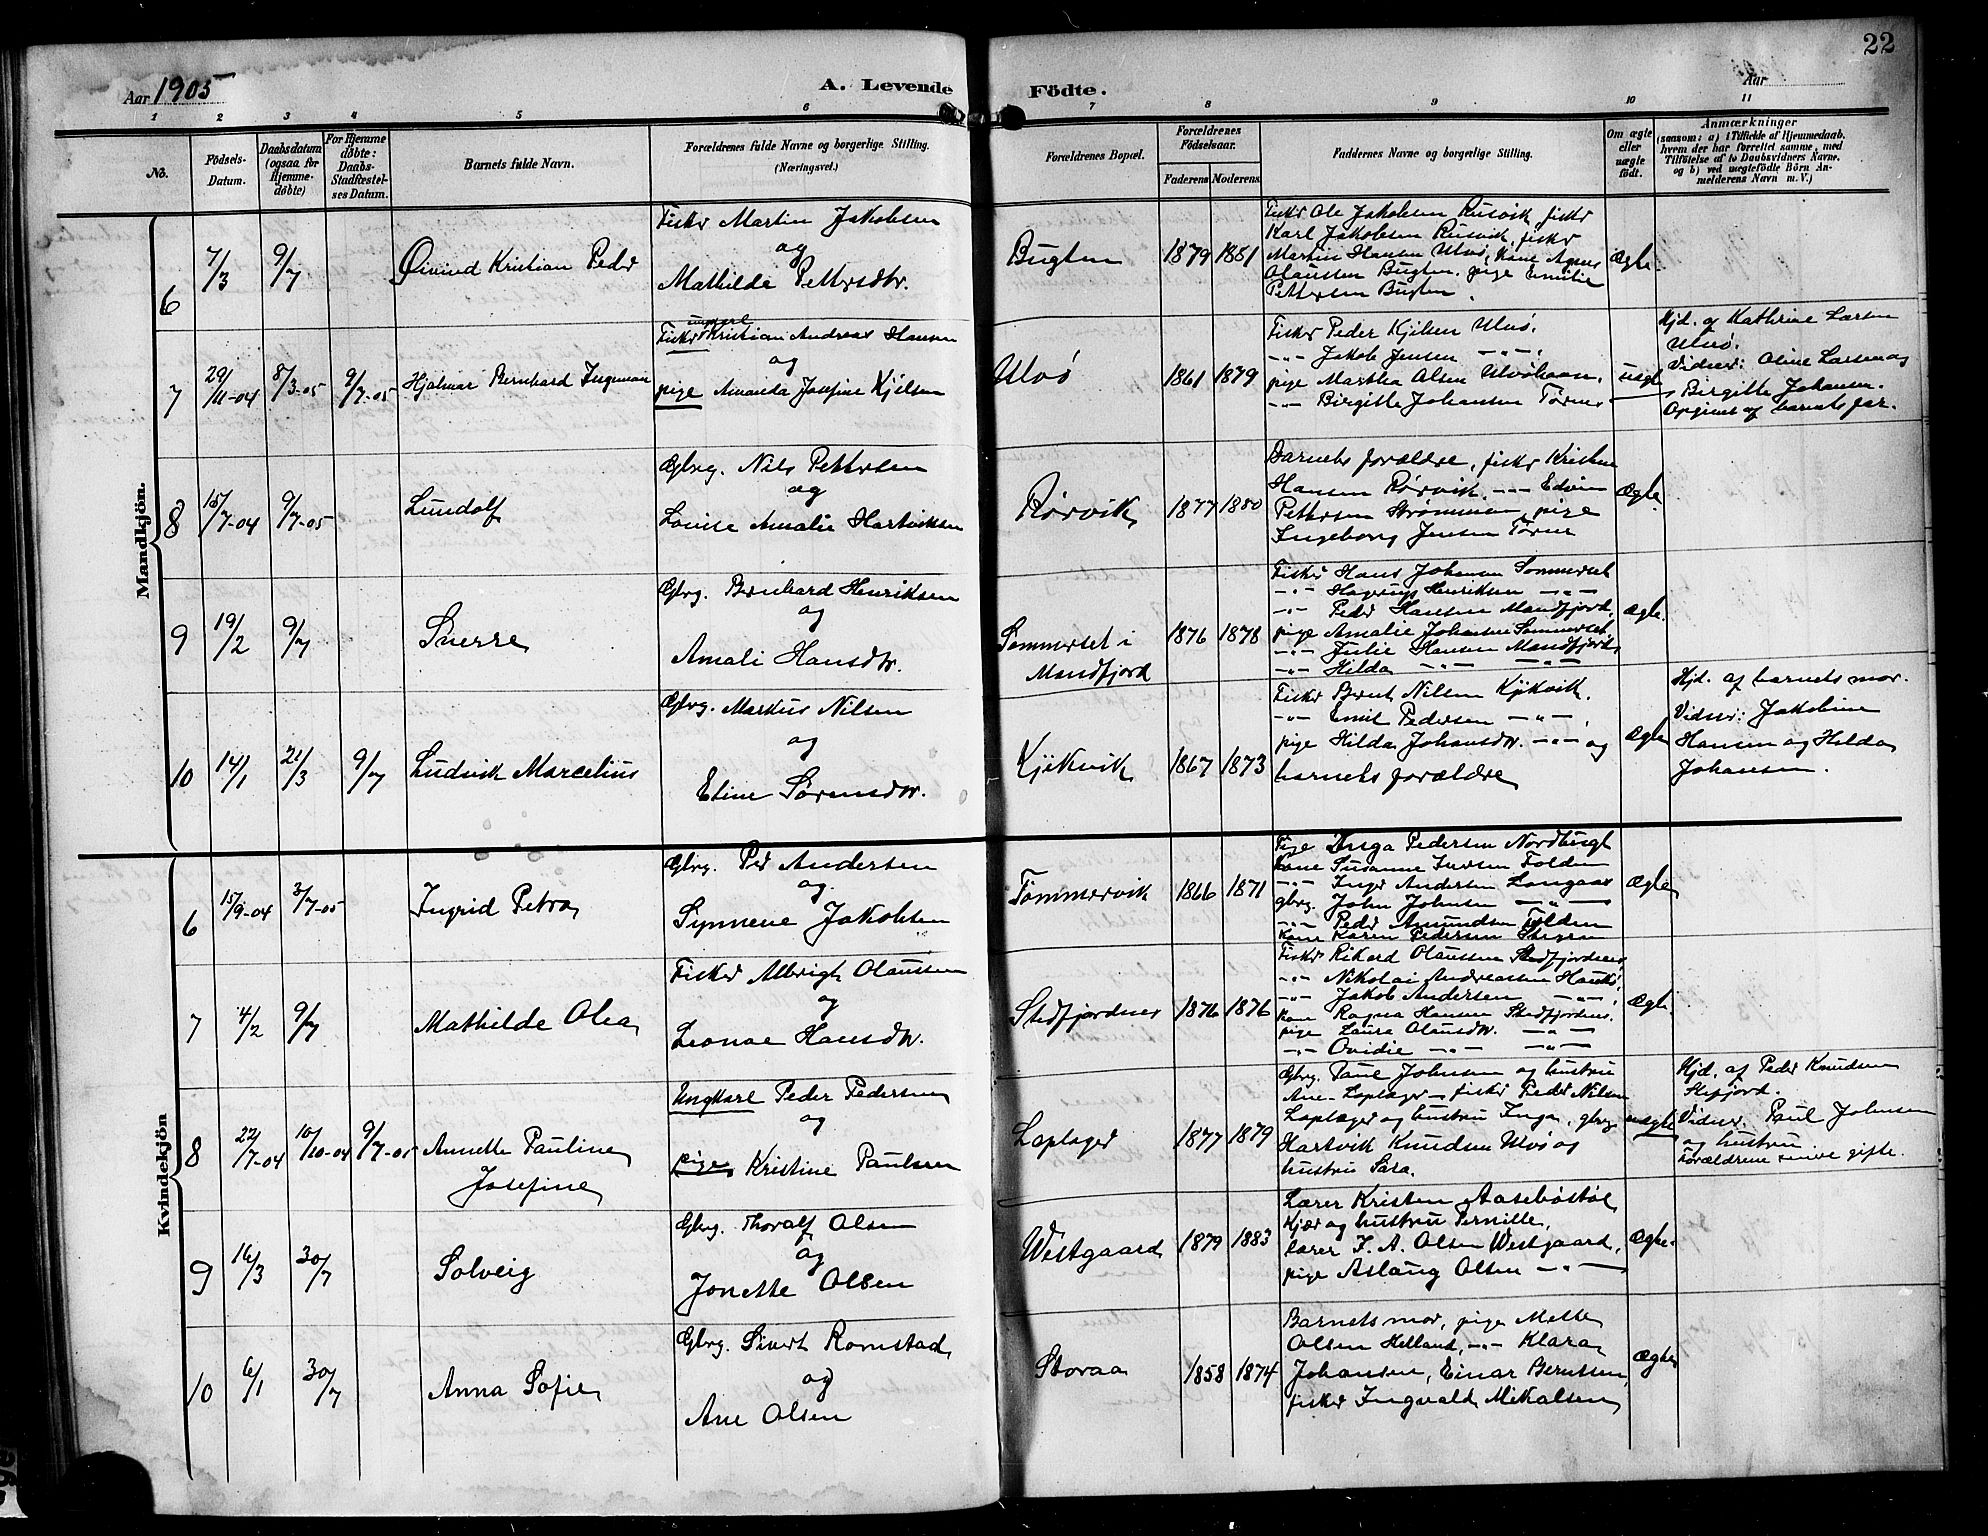 22
Aar 1905
A. Levende Födte.
Aar
1 2 3 4 5 6 7 8 9 10 11
No.
Födsels-Datum.
Daabsdatum (ogsaa for Hjemme-döbte)
For Hjemme döbte: Daabs-Stadfæstelses Datum.
Barnets fulde Navn.
Forældrenes fulde Navne og borgerlige Stilling. (Næringsvei.)
Forældrenes Bopæl.
Forældrenes Födselsaar.
Faderens Moderens
Faddernes Navne og borgerlige Stilling.
Om ægte eller uægte födt.
Anmærkninger
(saasom: a) i Tilfælde af Hjemmedaab, hvem der har forrettet samme, med Tilföielse af to Daabsvidners Navne, og b) ved uægtefödte Börn Anmelderens Navn m. V.)
Mandkjön.
6 7/3 9/7 Øivind Kristian Peder
Fisker Martin Jakobsen
og
Mathilde Pettersdtr.
Bugten 1879 1881
Fisker Ole Jakobsen Rusvik, fisker
Karl Jakobsen Rusvik, fisker
Martin Hansen Ulvø, Kone Agnes
Olaussen Bugten, pige Emilie
Pettersen Bugten.
Ægte.
7 29/11-04 8/3-05 9/7-05 Hjalmar Bernhard Ingeman
ungkarl
Fisker Kristian Andreas Hansen
og
pige Amanda Josefine Kjilsen
Ulvø 1861 1879
Fisker Peder Kjilsen Ulvø.
-"- Jakob Jensen -"-
pige Martha Olsen Ulvøhaan,
-"- Birgitte Johansen Tørnes
uægte
Hjd. af Kathrine Larsen
Ulvø.
Vidner: Oline Larsen og
Birgitte Johansen.
Opgivet af barnets far.
8 15/7-04 9/7-05 Lundolf
Gbrg. Nils Pettersen
og
Lovise Amalie Hartviksen
Rørvik 1877 1880
Barnets forældre, fisker Kristen
Hansen Rørvik, -"- Edvin
Pettersen Strømmen, pige
Ingeborg Jensen Tørne
Ægte.
9 19/2 9/7 Sverre
Gbrg. Bernhard Henriksen
og
Amali Hansdtr.
Sommerset i
Mandfjord 1876 1878
Fisker Hans Johansen Sommerset
-"- Hagerup Henriksen -"-
-"- Peder Hansen Mandfjord,
pige Amalie Johansen Sommerset,
-"- Julie Hansen Mandfjord,
-"- Hilda -"- -"-
Ægte.
10 14/1 21/3 9/7 Ludvik Marcelius
Gbrg. Markus Nilsen
og
Eline Sørensdtr.
Kjikvik 1867 1873
Fisker Bernt Nilsen Kjikvik.
-"- Emil Pedersen -"-,
pige Hilda Johansdtr. -"- og
barnets forældre
Ægte
Hjd. af barnets mor.
Vidner: Jakobine
Hansen og Hilda
Johansen.
Kvindekjön
6 15/9-04 3/7-05 Ingrid Petra
Gbrg. Peder Andersen
og
Synnene Jakobsen
Tømmervik 1866 1871
Pige Inga Pedersen Nordbugt
Kone Susanne Iversen Folden
-"- Inger Andersen Langaas
gbrg. John Johnsen -"-
-"- Peder Amundsen Folden
Kone Karen Pedersen
Ægte
7 4/2 9/7 Mathilde Olea
Fisker Albrigt Olaussen
og
Leonae Hansdtr.
Stedfjordnes 1876 1876
Fisker Rikard Olaussen Stedfjordnes,
-"- Nikolai Andreassen
-"- Jakob Andersen -"-
Kone Ragna Hansen Stedfjordnes,
pige Laura Olausdtr. -"-
-"- Ovidie -"- -"-
Ægte.
8 22/7-04 10/10-04 9/7-05 Annette Pauline
Josefine
Ungkarl Peder Pedersen
og
pige Kristine Paulsen
Laplager 1877 1879
Gbrg. Paul Johnsen og hustru
Ane Laplager - fisker Peder Nilsen
Laplager og hustru Inga, gbrg.
Hartvik Knudsen Ulvø og
hustru Sara.
uægte
Hjd. af Peder Knudsen
Stefjord.
Vidner: Paul Johnsen
og hustru
Forældrene senere gifte.
9 16/3 30/7 Solveig
Gbrg. Thoralf Olsen
og
Jonette Olsen
Westgaard 1879 1883
Lærer Kristen Aasebøstøl
Kjær og hustru Pernille,
lærer J. A. Olsen Westgaard,
pige Aslaug Olsen -"-
Ægte.
10 6/1 30/7 Anna Sofie
Gbrg. Sivert Romstad
og
Ane Olsen
Storaa 1858 1874
Barnets mor, pige Mette
Olsen Helland, -"- Klara
Johansen, Einar Berntsen,
fisker Ingvald Mikalsen
Ægte